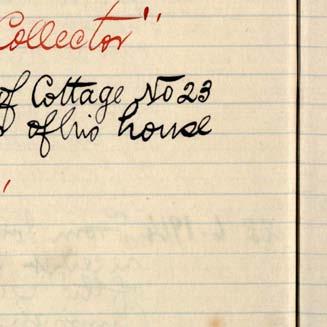 Collector"
of Cottage No 23
of his house